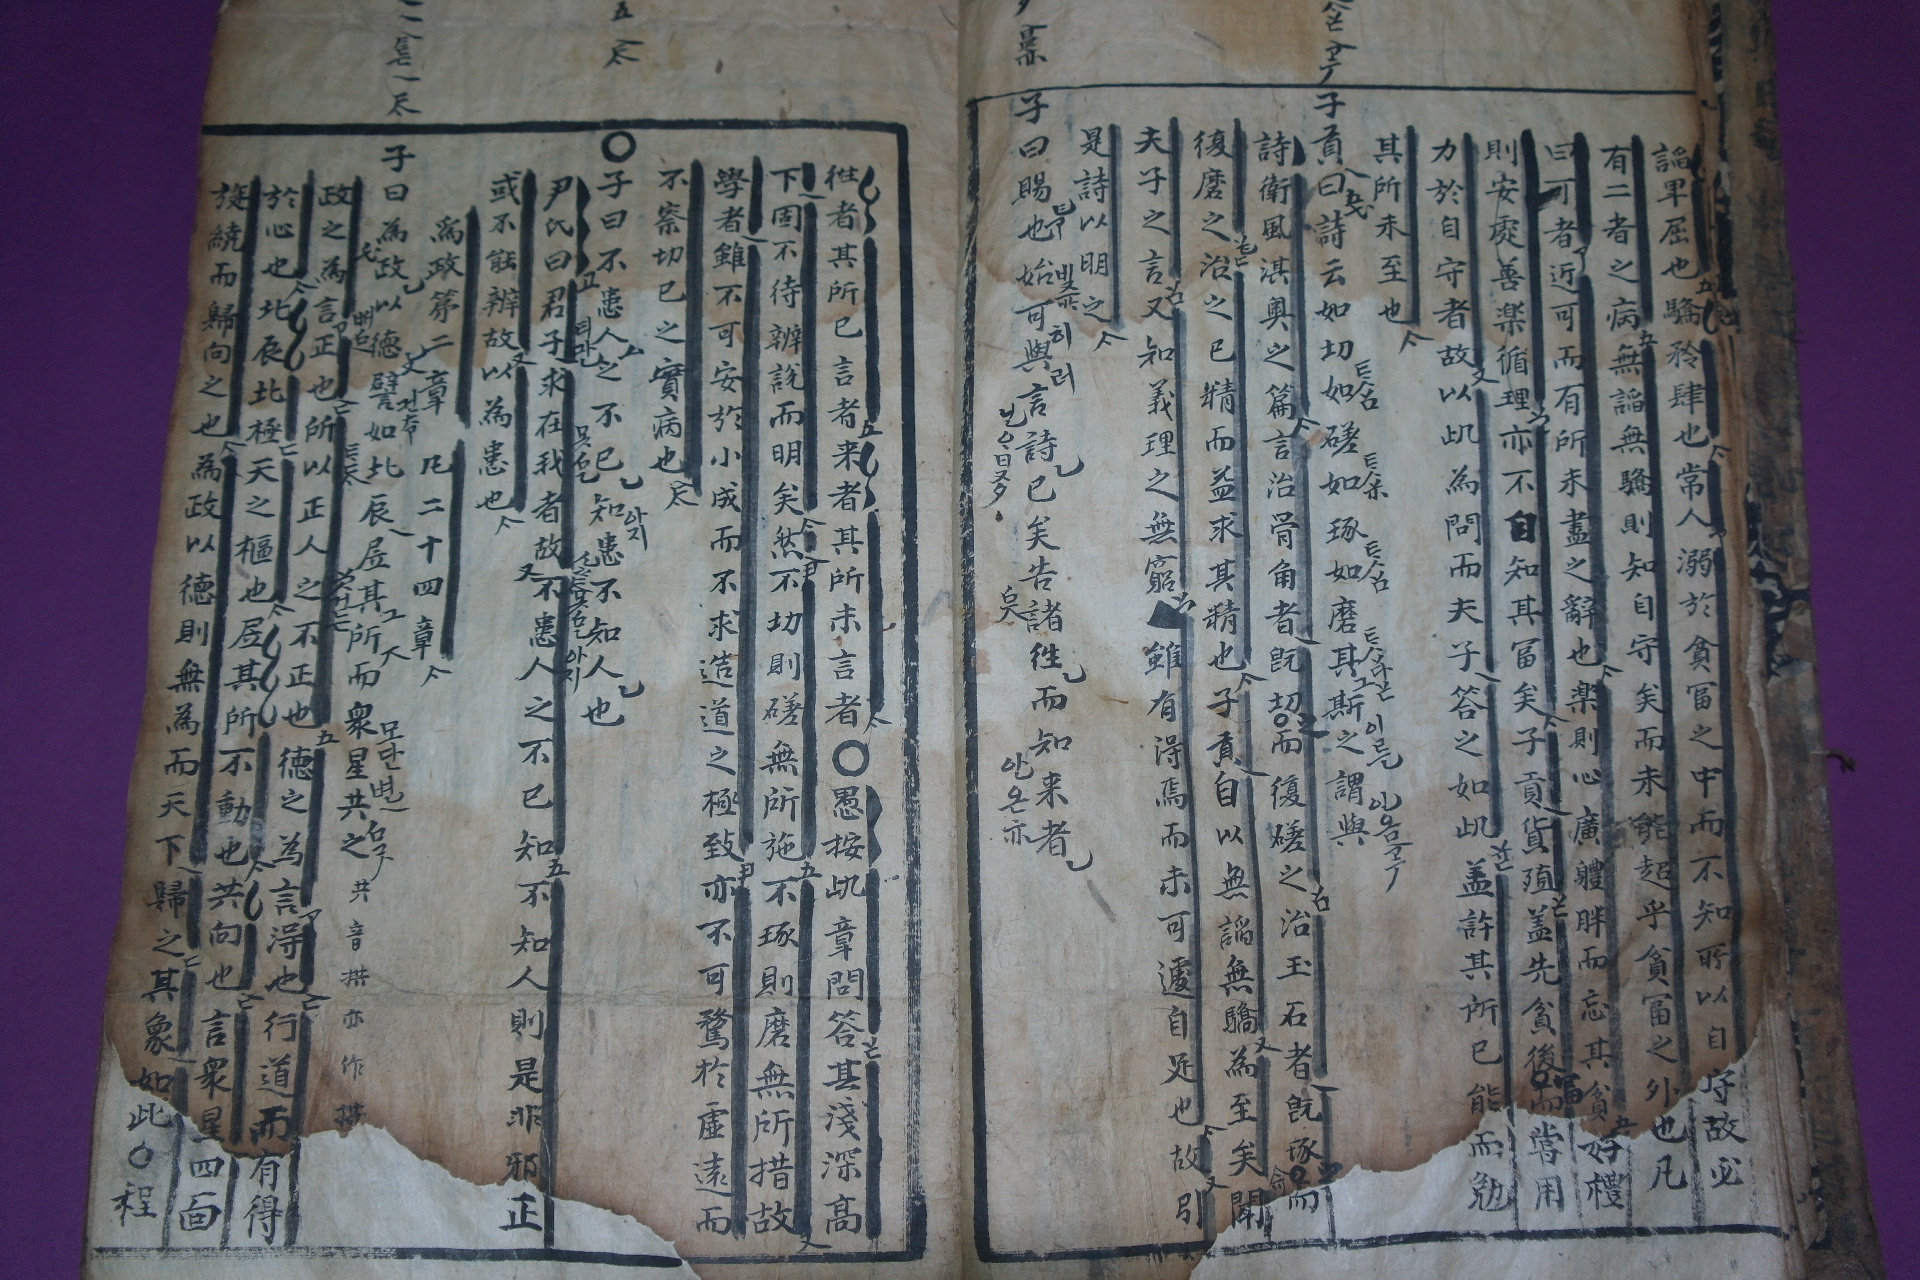 諂卑屈也驕矜肆也常人溺於貧富之中而不知所以自守故必
有二者之病無諂無驕則知自守矣而未能超乎貧富之外也凡
曰可者近可而有所未盡之辭也楽則心廣體胖而忘其貧好禮
則安處善楽循理亦不自知其冨矣子貢貨殖盖先貧後冨而嘗用
力於自守者故以此為問而夫子答之如此盖許其所已能而勉
其所未至也
子貢曰詩云如切如磋如琢如磨其斯之謂與
詩衛風淇奥之篇言治骨角者既切而復磋之治玉石者既琢而
復磨之治之已精而益求其精也子貢自以無諂無驕為至矣聞
夫子之言又知義理之無窮雖有淂焉而未可遽自足也故引
是詩以明之
子曰賜也始可與言詩已矣告諸徃而知来者
徃者其所已言者来者其所未言者〇愚按此章問答其淺深高
下固不待辨說而明矣然不切則磋無所施不琢則磨無所措故
學者雖不可安於小成而不求造道之極致亦不可騖於虛遠而
不察切已之實病也
〇子曰不患人之不已知患不知人也
尹氏曰君子求在我者故不患人之不已知不知人則是非邪正
或不能辨故以為患也
為政第二章 凡二十四章
子曰為政以德譬如北辰居其所而衆星共之 共音拱亦作拱
政之為言正也所以正人之不正也德之為言淂也行道而有得
於心也北辰北極天之樞也居其所不動也共向也言衆星四面
旋繞而歸向之也為政以德則無為而天下歸之其象如此〇程